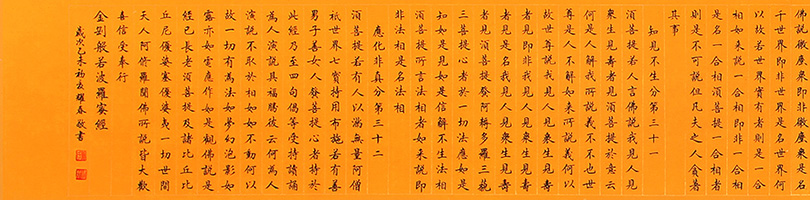 佛說微塵眾即非微塵眾是名
千世界即非世界是名世界何
以故若世界實有者則是一合
相如來說一合相即非一合相
是名一合相須菩提一合相者
則是不可說但凡夫之人貪著
其事
知見不生分第三十一
須菩提若人言佛說我見人見
眾生見壽者見須菩提於意云
何是人解我所說義不不也世
尊是人不解如來所說義何以
故世尊說我見人見眾生見壽
者見即非我見人見眾生見壽
者見是名我見人見眾生見壽
者見須菩提發阿耨多羅三藐
三菩提心者於一切法應如是
知如是見如是信解不生法相
須菩提所言法相者如來說即
非法相是名法相
應化非真分第三十二
須菩提若有人以滿無量阿僧
祇世界七寶持用布施若有善
男子善女人發菩提心者持於
此經乃至四句偈等受持讀誦
為人演說其福勝彼云何為人
演說不取於相如如不動何以
故一切有為法如夢幻泡影如
露亦如電應作如是觀佛說是
經已長老須菩提及諸比丘比
丘尼優婆塞優婆夷一切世間
天人阿修羅聞佛所說皆大歡
喜信受奉行
金剛般若波羅蜜經
歲次乙未初夏耀春敬書